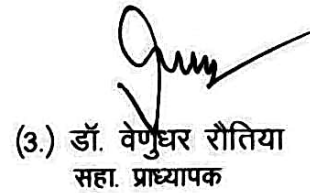 (3.) डॉ. वेणुधर रौतिया
सहा. प्राध्यापक